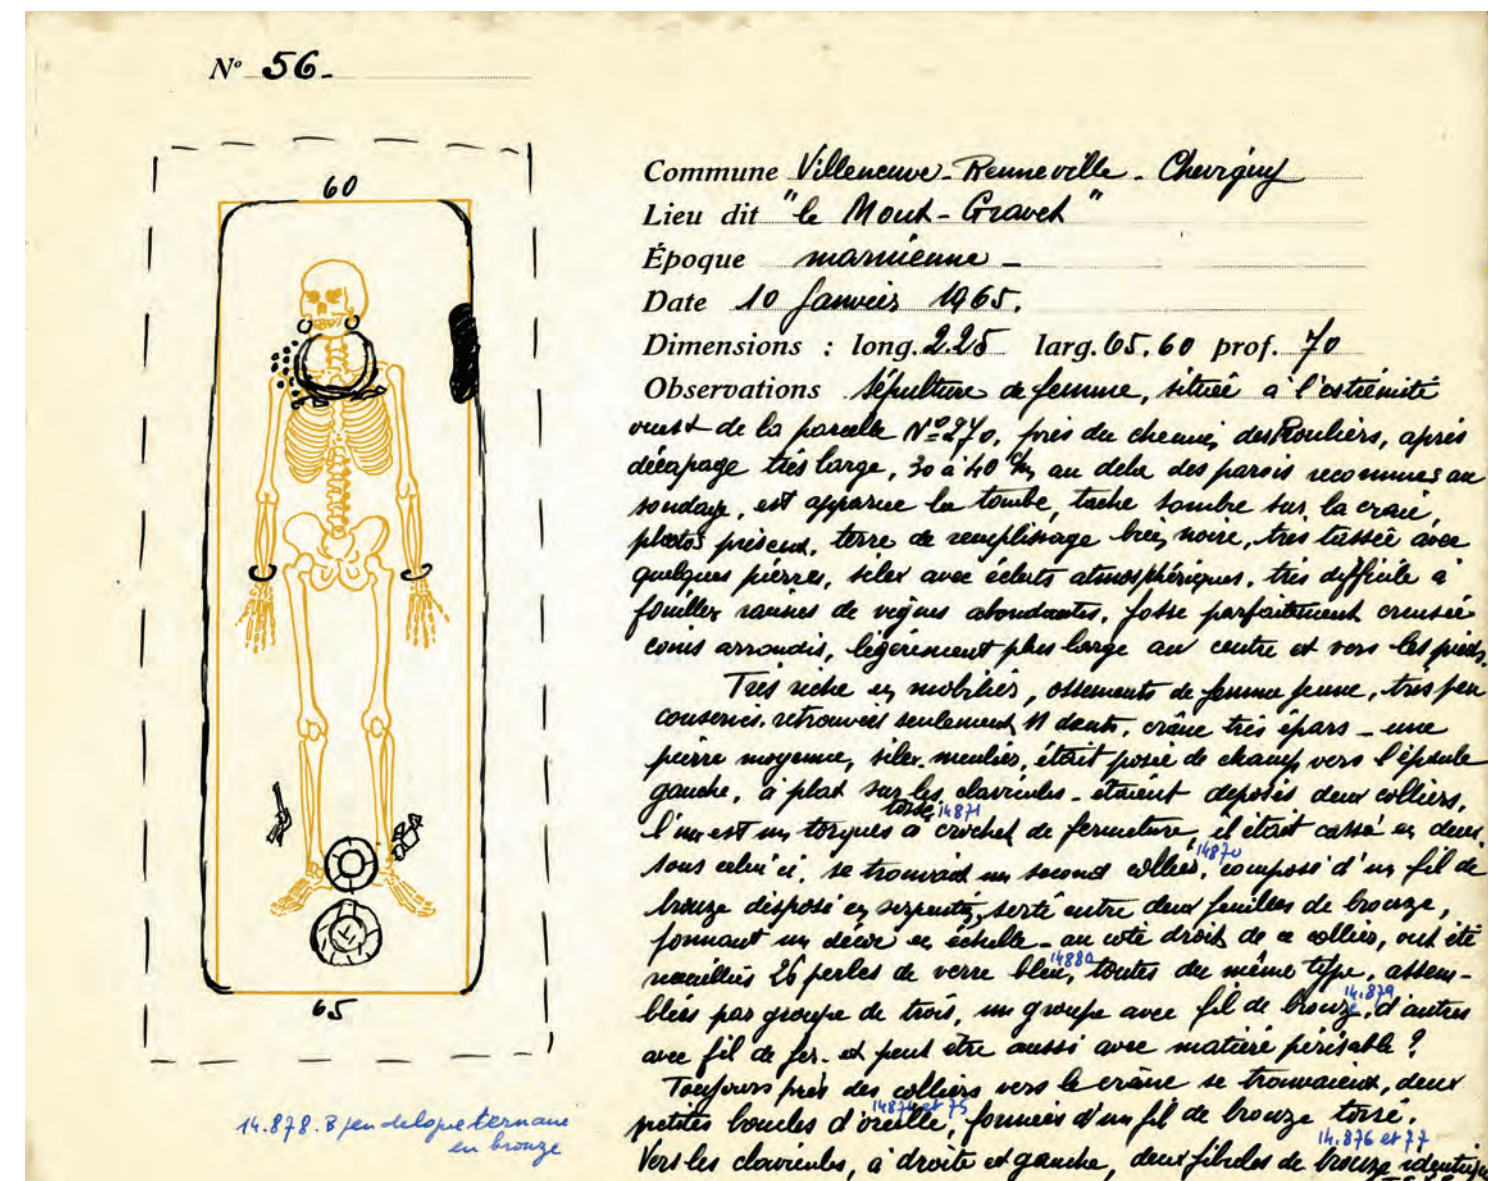 N° 56.
60
65
14.878. B pendeloque
en bronze
Commune Villeneuve-Renneville-Chevigny
Lieu dit "le Mont-Gravet"
Époque marnienne
Date 10 Janvier 1965.
Dimensions : long. 2.25 larg. 65.60 prof. 70
Observations Sépulture de femme, située à l'extrémité
ouest de la parcelle N° 270, près du chemin des Rouliers, après
décapage très large, 30 à 40 cm au delà des parois reconnues au
sondage, est apparue la tombe, tache sombre sur la craie,
photos présent, terre de remplissage bien noire, très tassée avec
quelques pierres, silex avec éclats atmosphériques, très difficile à
fouiller racines de vignes abondantes, fosse parfaitement creusée
coins arrondis, légèrement plus large au centre et vers les pieds.
Très riche en mobilier, ossements de femme jeune, très peu
conservés. retrouvés seulement 11 dents, crâne très épars - une
pierre moyenne, silex meulier, était posée de champ vers l'épaule
gauche, à plat sur les clavicules - étaient déposés deux colliers,
torse 14871
l'un est un torques à crochet de fermeture, il était cassé en deux
14870
sous celui ci, se trouvait un second collier, composé d'un fil de
bronze disposé en serpentin, serti entre deux feuilles de bronze,
formant un décor en échelle - au coté droit de ce collier, ont été
14880
recueillies 26 perles de verre bleu, toutes du même type, assem-
14.879
blées par groupe de trois, un groupe avec fil de bronze, d'autres
avec fil de fer - et peut être aussi avec matière périsable ?
Toujours près des colliers vers le crâne se trouvaient, deux
14874 et 75
petites boucles d'oreille, formées d'un fil de bronze torsé.
14.876 et 77
Vers les clavicules, à droite et gauche, deux fibules de bronze